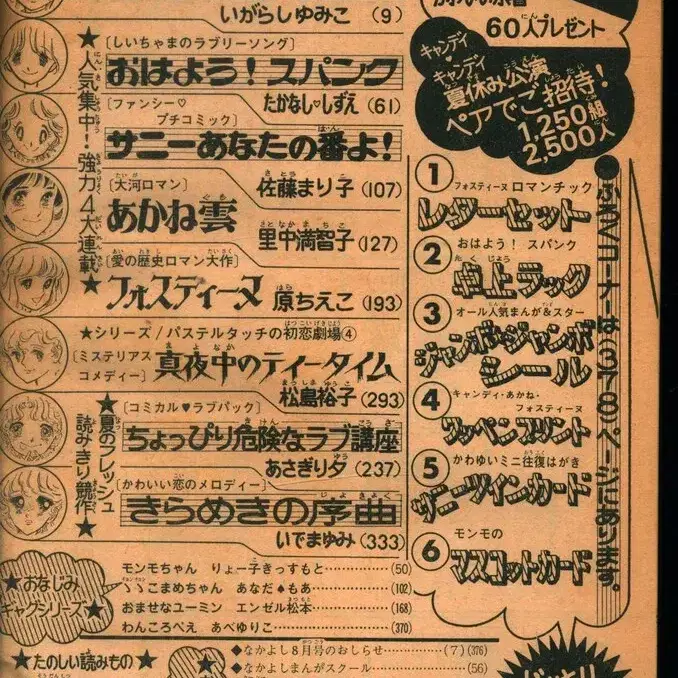 いがらしゆみこ (9)
★人気集中!強力4大連載★
〔しいちゃまのラブリーソング〕
おはよう!スパンク
たかなし♡しずえ (61)
〔ファンシー♡
プチコミック〕
サニーあなたの番よ!
佐藤まり子 (107)
〔大河ロマン〕
あかね雲
里中満智子 (127)
〔愛の歴史ロマン大作〕
フォスティーヌ 原ちえこ (193)
★シリーズ/パステルタッチの初恋劇場④
〔ミステリアス
コメディー〕 真夜中のティータイム
松島裕子 (293)
★夏のフレッシュ
読みきり競作★
〔コミカル♥ラブパック〕
ちょっぴり危険なラブ講座
あさぎり夕 (237)
〔かわいい恋のメロディー〕
きらめきの序曲
いでまゆみ (333)
★おなじみ
ギャグシリーズ★
モンモちゃん りょー子きっすもと (50)
こまめちゃん あなだ♠もあ (102)
おませなユーミン エンゼル松本 (168)
わんころべえ あべゆりこ (370)
★たのしい読みもの★
◆なかよし8月号のおしらせ (7)(376)
◆なかよしまんがスクール (56)
60人プレゼント
キャンディ・
キャンディ
夏休み公演
ペアでご招待!
1,250組
2,500人
●ふろくコーナーは(378)ページにあります。
1 フォスティーヌ ロマンチック
レターセット
2 おはよう! スパンク
卓上ラック
3 オール人気まんが&スター
ジャンボ・ジャンボ
シール
4 キャンディ・あかね・
フォスティーヌ
ワッペンプリント
5 かわゆいミニ往復はがき
サニーツインカード
6 モンモの
マスコットカード